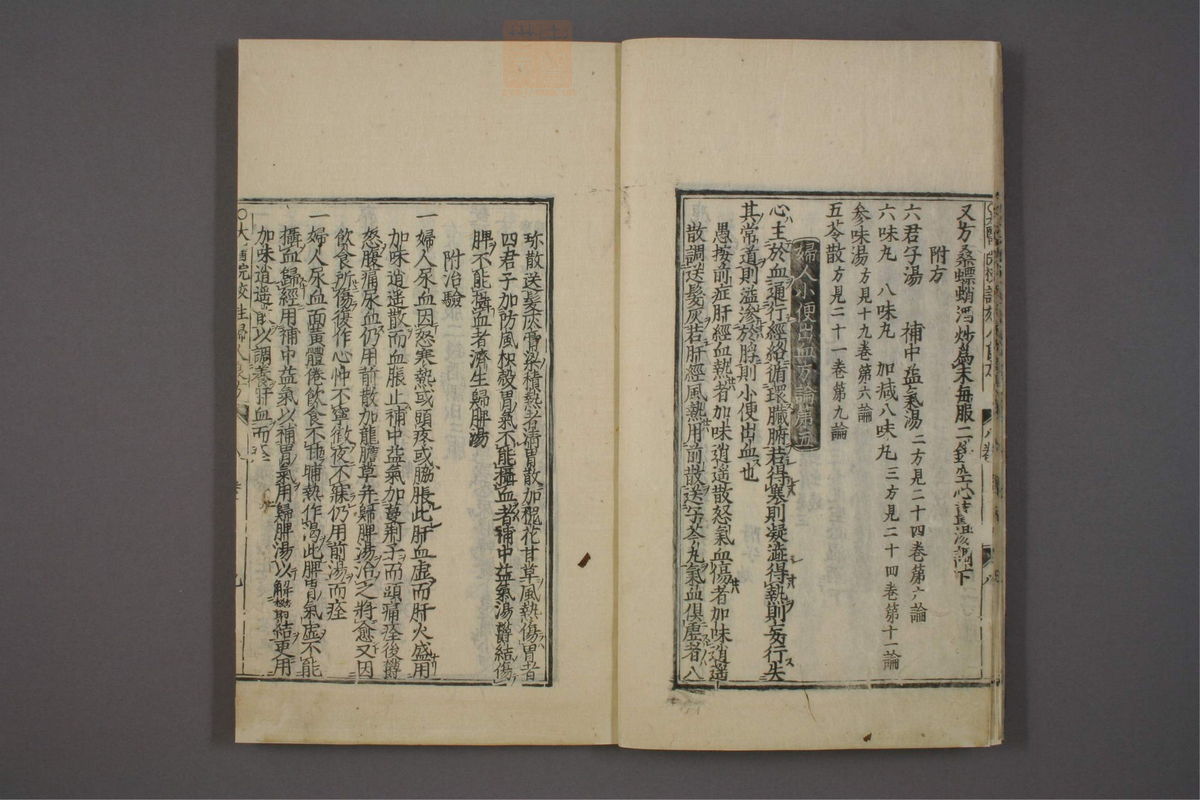 又方桑螵蛸酒炒爲末每服二錢空心薑湯調下
附方
六君子湯　補中益氣湯二方見二十四卷第六論
六味丸　八味丸　加減八味丸三方見二十四卷第十一論
參味湯方見十九卷第六論
五苓散方見二十一卷第九論
婦人小便出血方論第五
心主於血通行經絡循環臟腑若得寒則凝澁得熱則妄行失
其常道則溢滲於脬則小便出血也
愚按前症肝經血熱者加味逍遥散怒氣血傷者加味逍遥
散調送髮灰若肝經風熱用前散送子芩丸氣血俱虛者八
珎散送髮灰膏粱積熱者清胃散加槐花甘草風熱傷胃者
四君子加防風枳殼胃氣不能攝血者補中益氣湯鬱結傷
脾不能攝血者濟生歸脾湯
附治驗
一婦人尿血因怒寒熱或頭疼或脇脹此肝血虛而肝火盛用
加味逍遥散而血脹止補中益氣加蔓荊子而頭痛痊後鬱
怒腹痛尿血仍用前散加龍膽草并歸脾湯治之將愈又因
飲食所傷復作心忡不寧徹夜不寐仍用前湯而痊
一婦人尿血面黃體倦飲食不甘晡熱作渴此脾胃氣虛不能
攝血歸經用補中益氣以補胃氣用歸脾湯以解鬱結更用
加味逍遥散以調養肝血而